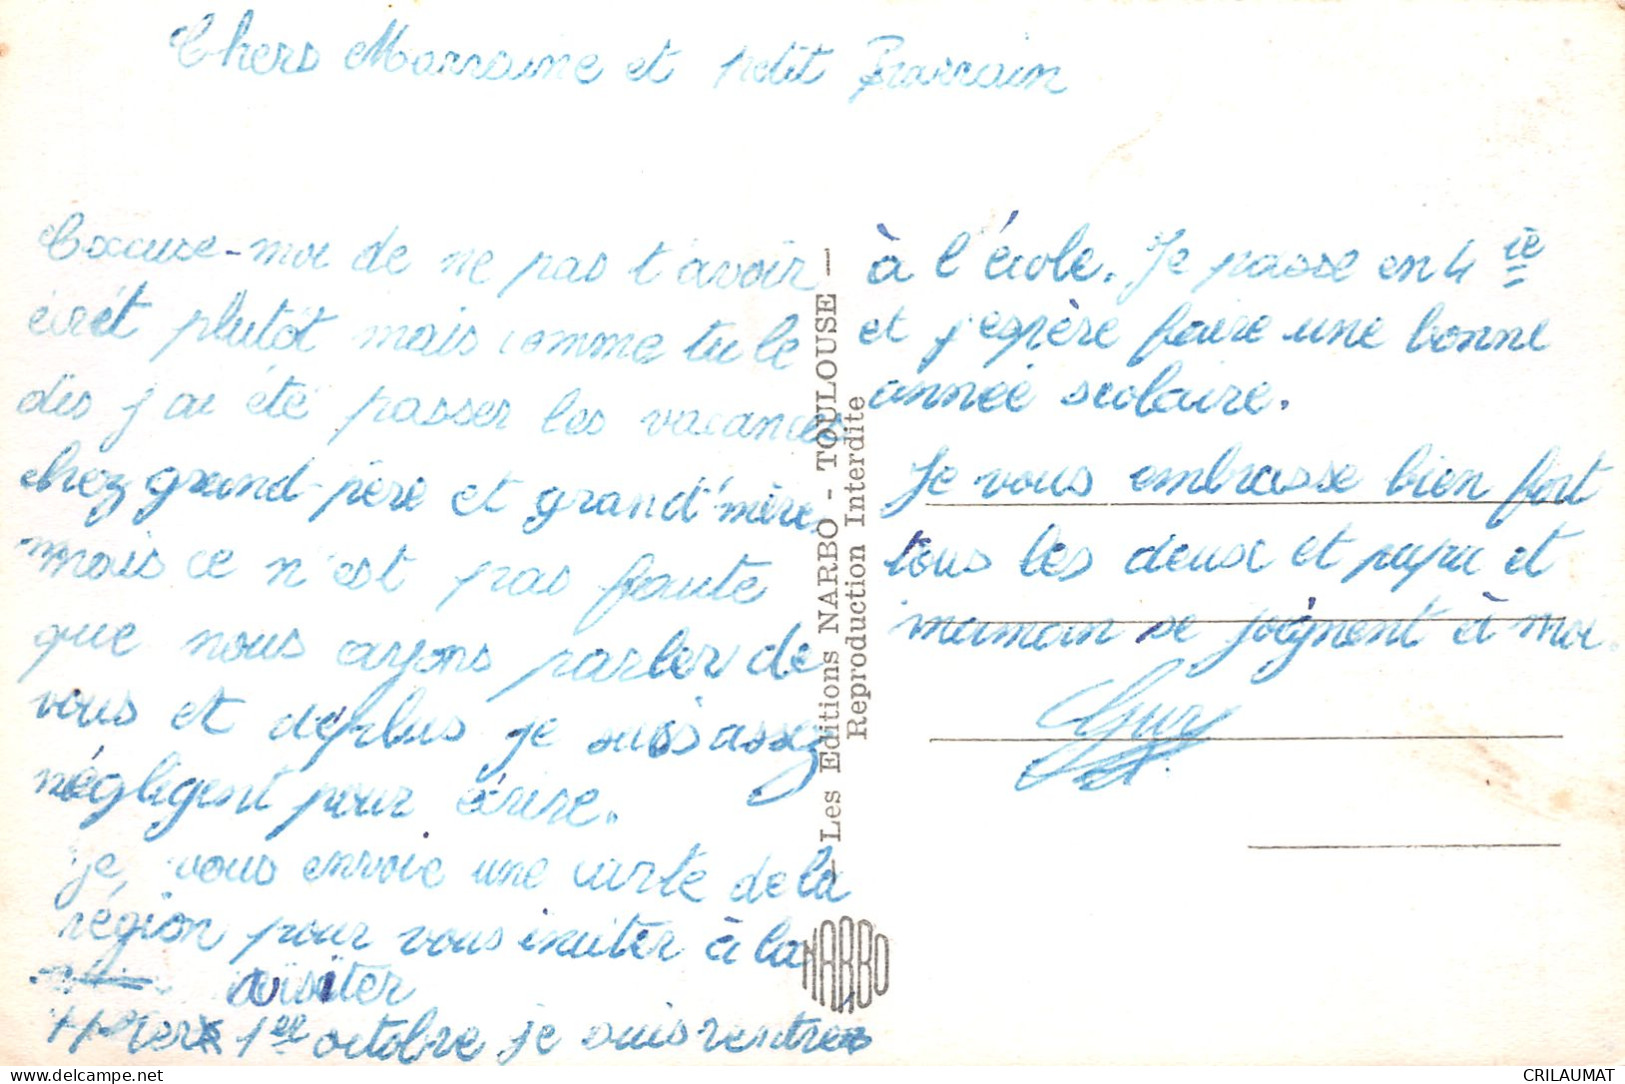 Chers Marraine et petit Parrain
Excuse-moi de ne pas t'avoir
écrit plutôt mais comme tu le
dis j'ai été passer les vacances
chez grand-père et grand'mère,
mais ce n'est pas faute
que nous ayons parler de
vous et deplus je suis assez
négligent pour écrire.
Je vous envoie une carte de la
région pour vous inviter à la
visiter
Hier 1er octobre je suis rentrer
à l'école. Je passe en 4 ie
et j'espère faire une bonne
année scolaire.
Je vous embrasse bien fort
tous les deux et papa et
maman se joignent à moi.
Guy
— Les Editions NARBO - TOULOUSE —
Reproduction Interdite
NARBO
delcampe.net
CRILAUMAT